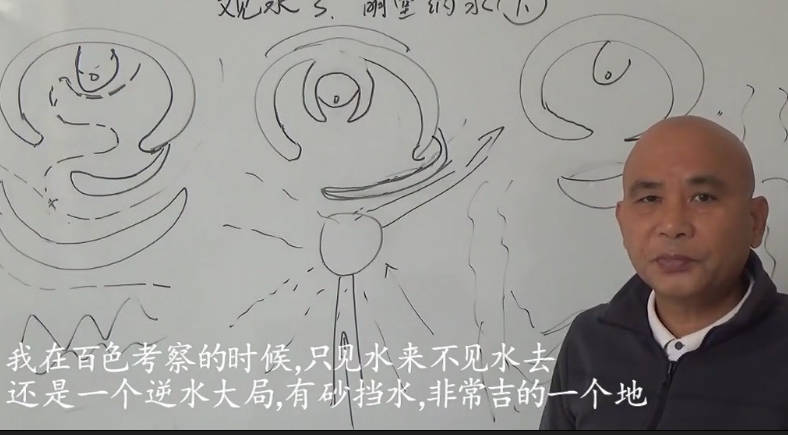 观水 3. 明堂纳水(下)
我在百色考察的时候,只见水来不见水去
还是一个逆水大局,有砂挡水,非常吉的一个地